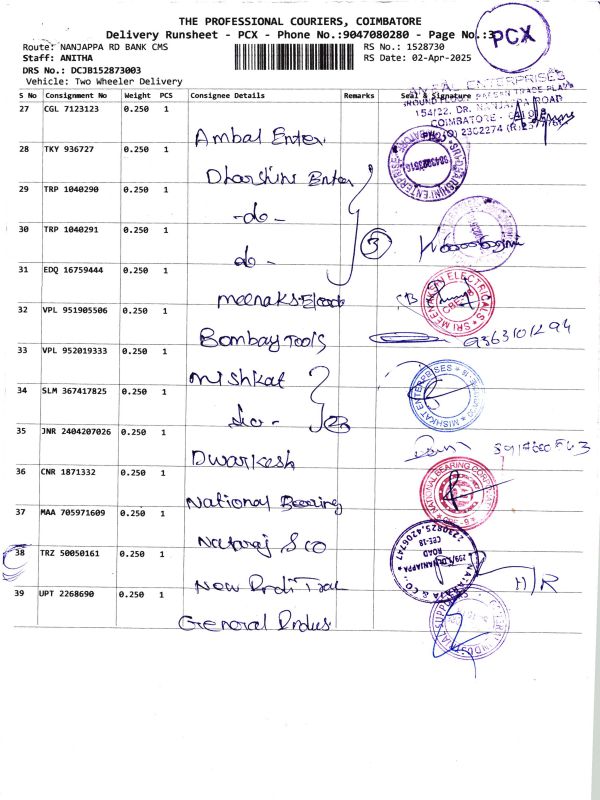 THE PROFESSIONAL COURIERS, COIMBATORE
Delivery Runsheet - PCX - Phone No.:9047080280 - Page No.:3
PCX
Route: NANJAPPA RD BANK CMS
RS No.: 1528730
Staff: ANITHA
RS Date: 02-Apr-2025
DRS No.: DCJB152873003
Vehicle: Two Wheeler Delivery
ENTERPRISES
154/22, DR. NANJAPPA ROAD
COIMBATORE
S No Consignment No Weight PCS Consignee Details Remarks Seal & Signature
27 CGL 7123123 0.250 1
Ambal Enter
28 TKY 936727 0.250 1
Dharshini Enter
29 TRP 1040290 0.250 1
-do-
30 TRP 1040291 0.250 1
do-
3
31 EDQ 16759444 0.250 1
meenaks Elect
SRI MEENAKSHI ELECTRICALS
32 VPL 951905506 0.250 1
Bombay Tools
9363101294
33 VPL 952019333 0.250 1
mishkat
MISHKAT ENTERPRISES
34 SLM 367417825 0.250 1
do-
2
35 JNR 2404207026 0.250 1
Dwarkesh
36 CNR 1871332 0.250 1
National Bearing
NATIONAL BEARING
37 MAA 705971609 0.250 1
Nataraj & CO
NATARAJA & CO.
38 TRZ 50050161 0.250 1
New Prdi Trad
H/R
39 UPT 2268690 0.250 1
General Indus